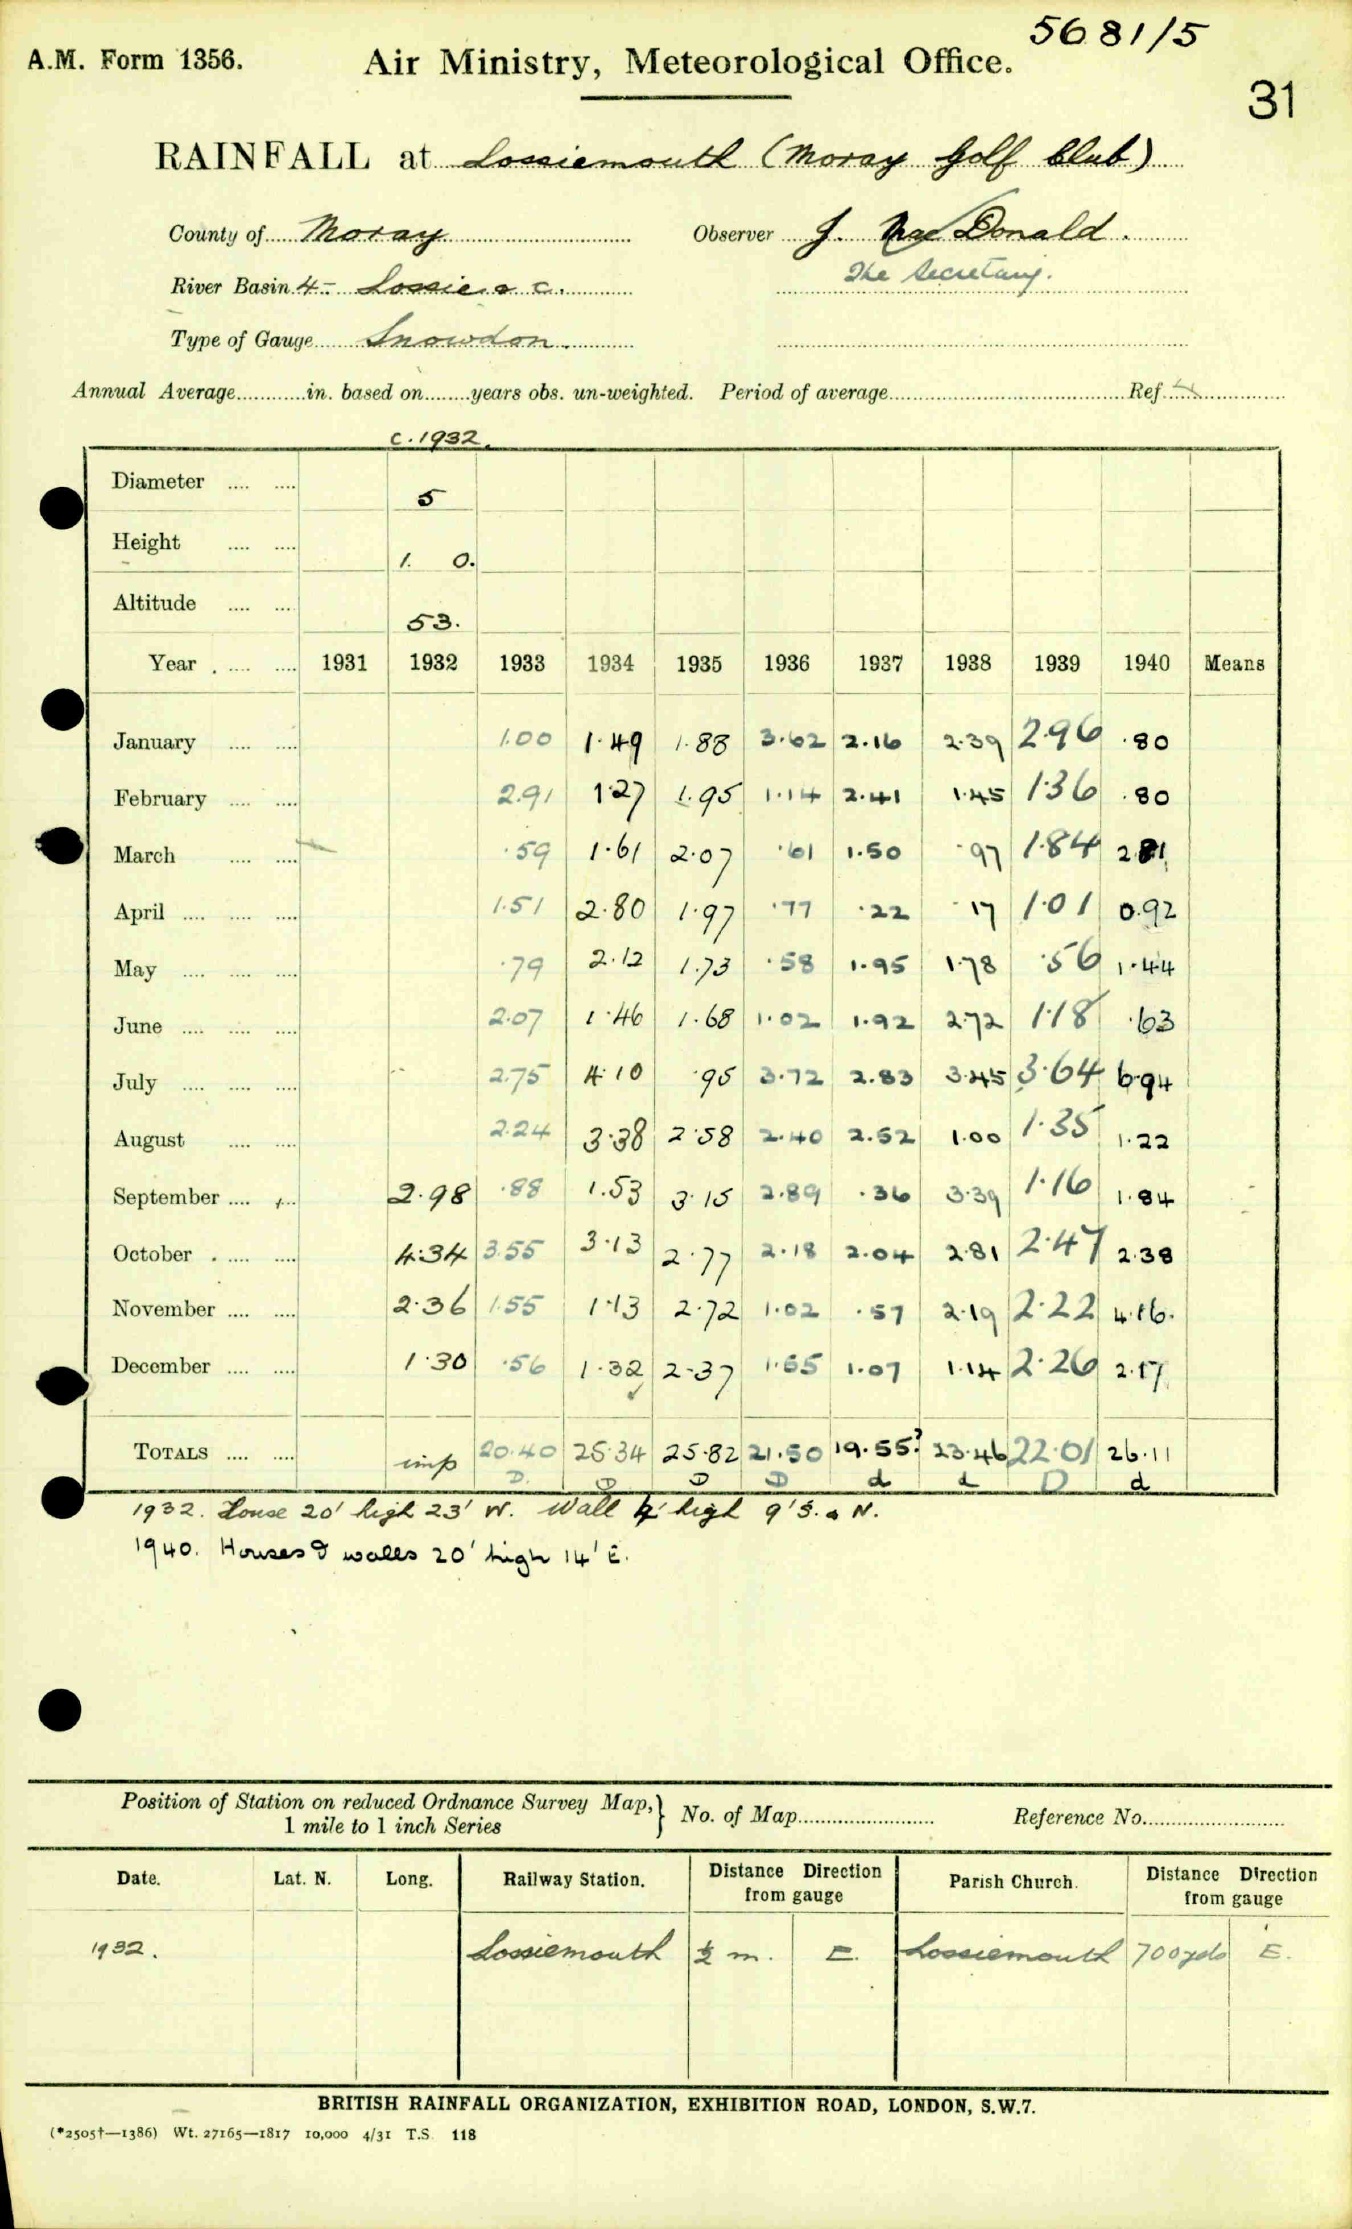 5681/5
A.M. Form 1356. Air Ministry, Meteorological Office.
31
RAINFALL at Lossiemouth (Moray Golf Club)
County of Moray Observer J. MacDonald.
The Secretary.
River Basin 4- Lossie & c.
Type of Gauge Snowdon.
Annual Average............in. based on........years obs. un-weighted. Period of average........ Ref.
c.1932.
Diameter .... .... 5
Height .... .... 1. 0.
Altitude .... .... 53.
Year . .... .... 1931 1932 1933 1934 1935 1936 1937 1938 1939 1940 Means
January .... .... 1.00 1.49 1.88 3.62 2.16 2.39 2.96 .80
February .... .... 2.91 1.27 1.95 1.14 2.41 1.45 1.36 .80
March .... .... .59 1.61 2.07 .61 1.50 .97 1.84 2.81
April .... .... .... 1.51 2.80 1.97 .77 .22 .17 1.01 0.92
May .... .... .... .79 2.12 1.73 .58 1.95 1.78 .56 1.44
June .... .... .... 2.07 1.46 1.68 1.02 1.92 2.72 1.18 .63
July .... .... .... 2.75 4.10 .95 3.72 2.83 3.45 3.64 6.94
August .... .... 2.24 3.38 2.58 2.40 2.52 1.00 1.35 1.22
September .... .... 2.98 .88 1.53 3.15 2.89 .36 3.39 1.16 1.84
October . .... .... 4.34 3.55 3.13 2.77 2.18 2.04 2.81 2.47 2.38
November .... .... 2.36 1.55 1.13 2.72 1.02 .57 2.19 2.22 4.16.
December .... .... 1.30 .56 1.32 2.37 1.55 1.07 1.14 2.26 2.17
TOTALS .... .... imp 20.40 25.34 25.82 21.50 19.55? 23.46 22.01 26.11
D. D D D d d D d
1932. House 20' high 23' W. Wall 4' high 9' S. & N.
1940. Houses & walls 20' high 14' E.
Position of Station on reduced Ordnance Survey Map, 1 mile to 1 inch Series } No. of Map........ Reference No........
Date. Lat. N. Long. Railway Station. Distance Direction from gauge Parish Church. Distance Direction from gauge
1932. Lossiemouth ½ m. E. Lossiemouth 700 yds E.
BRITISH RAINFALL ORGANIZATION, EXHIBITION ROAD, LONDON, S.W.7.
(*2505†—1386) Wt. 27165—1817 10,000 4/31 T.S. 118